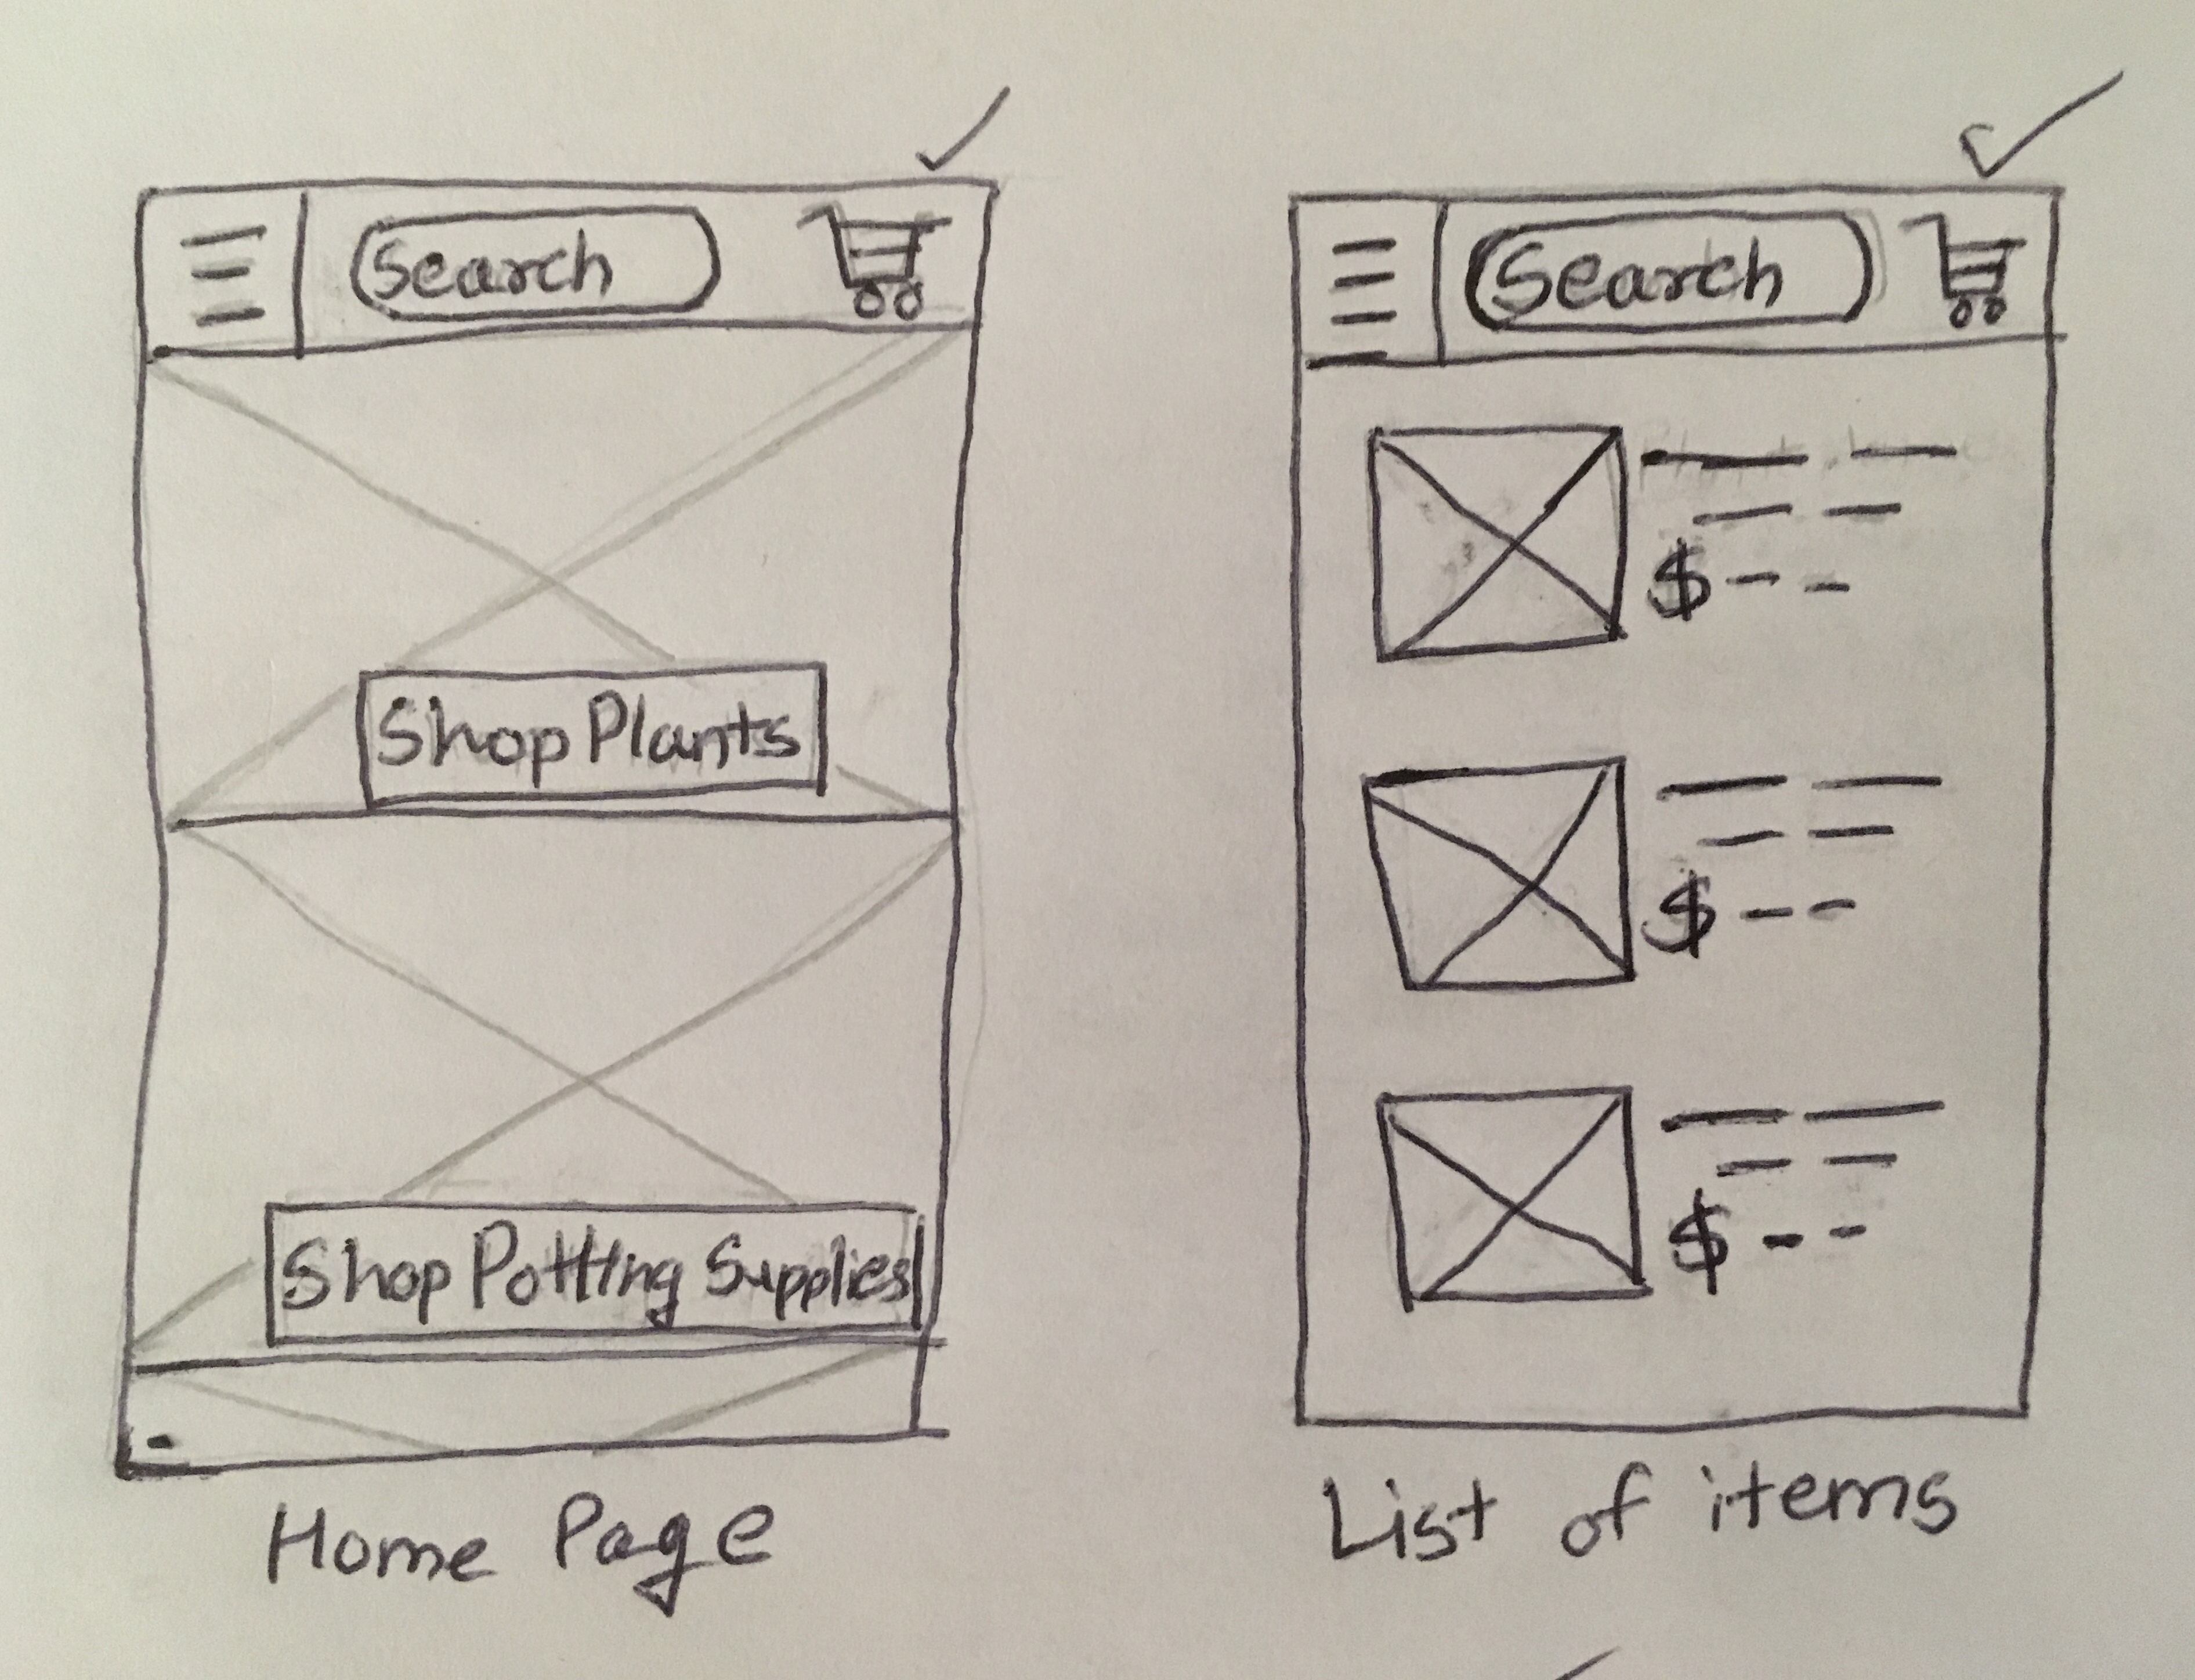 Search
Shop Plants
Shop Potting Supplies
Home Page
Search
$
$
$
List of items